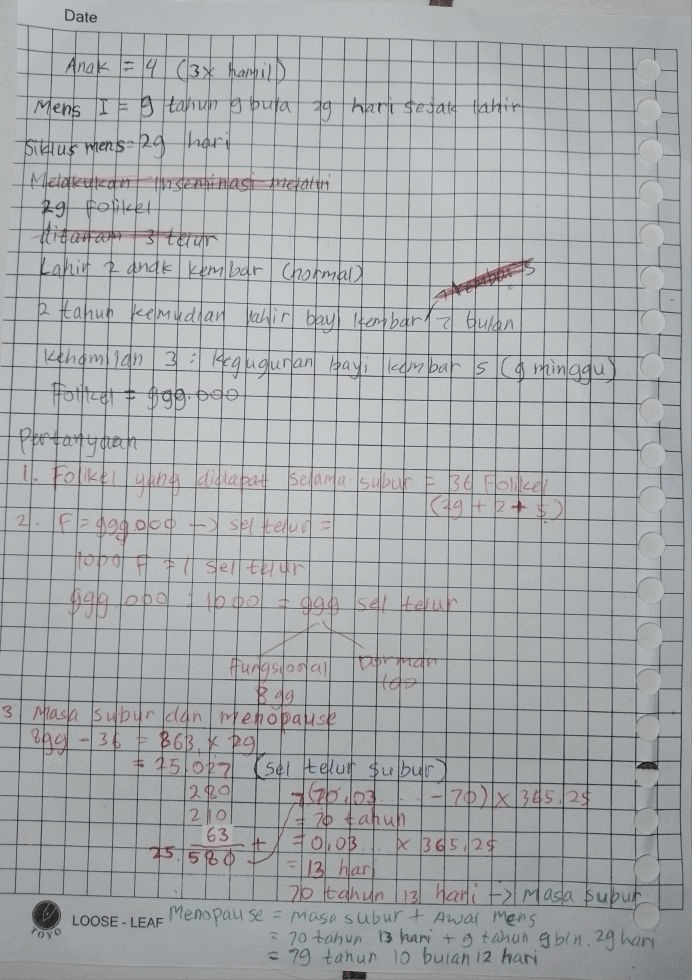 Date
Anak = 4 (3x hamil)
Mens I = 9 tahun 9 bula 29 hari sejak lahir
Siklus mens = 29 hari
Melakukan inseminasi melalui
29 Folikel
ditanam 3 telur
Lahir 2 anak kembar (normal)
2 tahun kemudian lahir bayi kembar 2 bulan
Kehamilan 3 : keguguran bayi kembar 5 (9 minggu)
Folikel = 999.000
Pertanyaan
1. Folikel yang didapat selama subur = 36 Folikel
(29 + 2 + 5)
2. F = 999000 -> sel telur =
1000 F = 1 sel telur
999.000 : 1000 = 999 sel telur
Fungsional Dorman
899 100
3 Masa subur dan menopause
899 - 36 = 863 x 29
= 25.027 (sel telur subur)
280 = (70,03... - 70) x 365,25
210 = 70 tahun
63 + = 0,03... x 365,25
25.580 = 13 hari
70 tahun 13 hari -> Masa subur
TOYO LOOSE-LEAF Menopause = masa subur + Awal mens
= 70 tahun 13 hari + 9 tahun 9 bln. 29 hari
= 79 tahun 10 bulan 12 hari